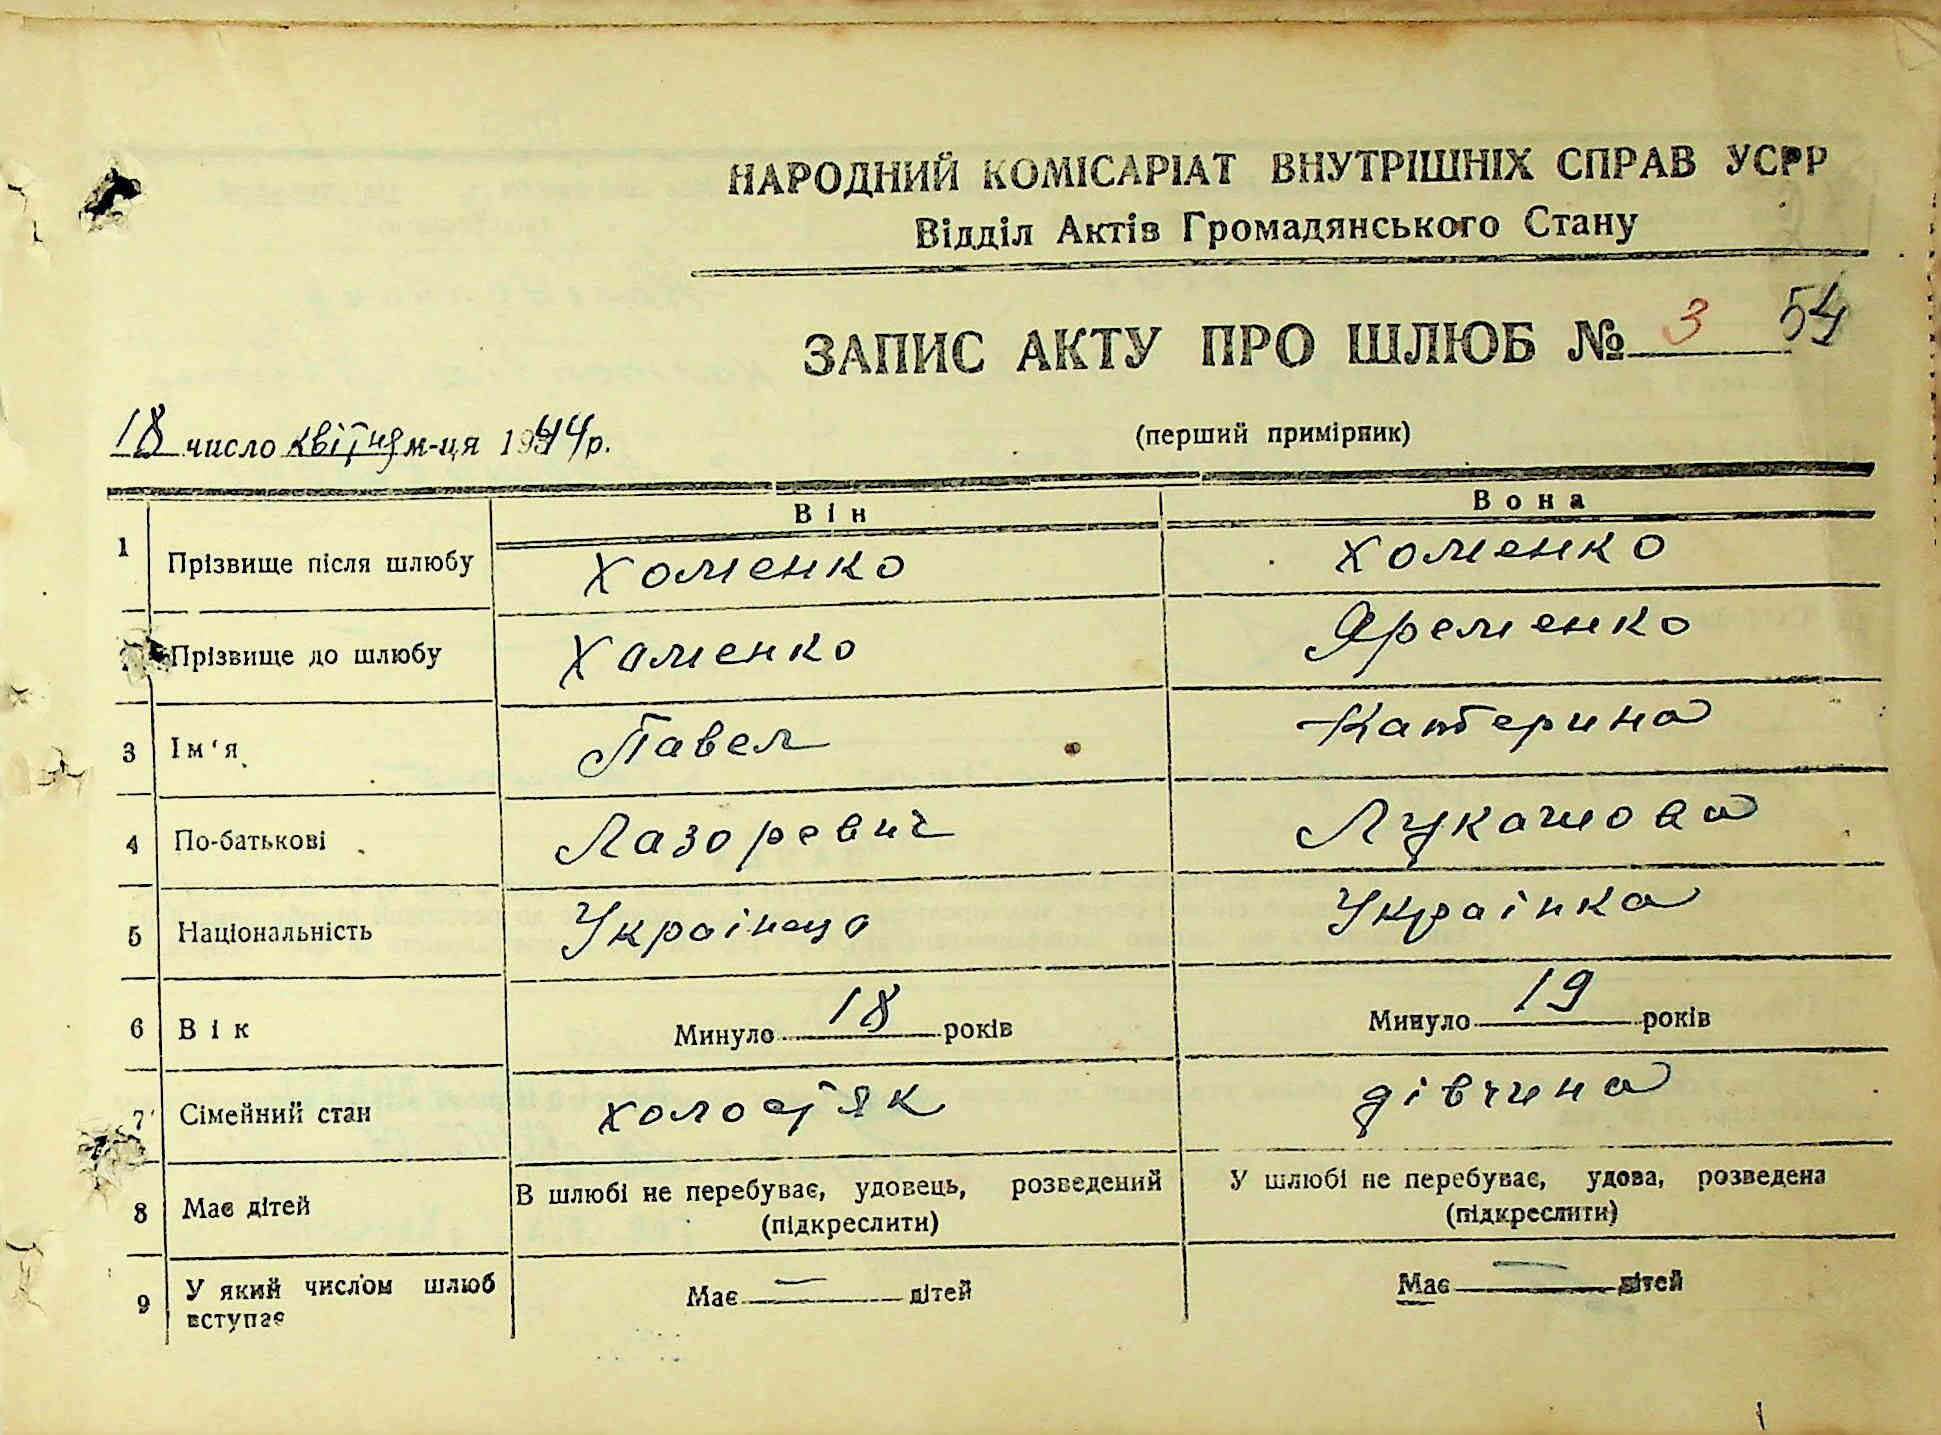 НАРОДНИЙ КОМІСАРІАТ ВНУТРІШНІХ СПРАВ УСРР
Відділ Актів Громадянського Стану
54
ЗАПИС АКТУ ПРО ШЛЮБ № 3
18 число квітня м-ця 1944 р.
(перший примірник)
Він Вона
1 Прізвище після шлюбу Хоменко Хоменко
Прізвище до шлюбу Хоменко Яременко
3 Ім'я Павел Катерина
4 По-батькові Лазоревич Лукашова
5 Національність Українец Українка
6 Вік Минуло 18 років Минуло 19 років
7 Сімейний стан холостяк дівчина
8 Має дітей В шлюбі не перебуває, удовець, розведений (підкреслити) У шлюбі не перебуває, удова, розведена (підкреслити)
9 У який числом шлюб вступає Має — дітей Має — дітей